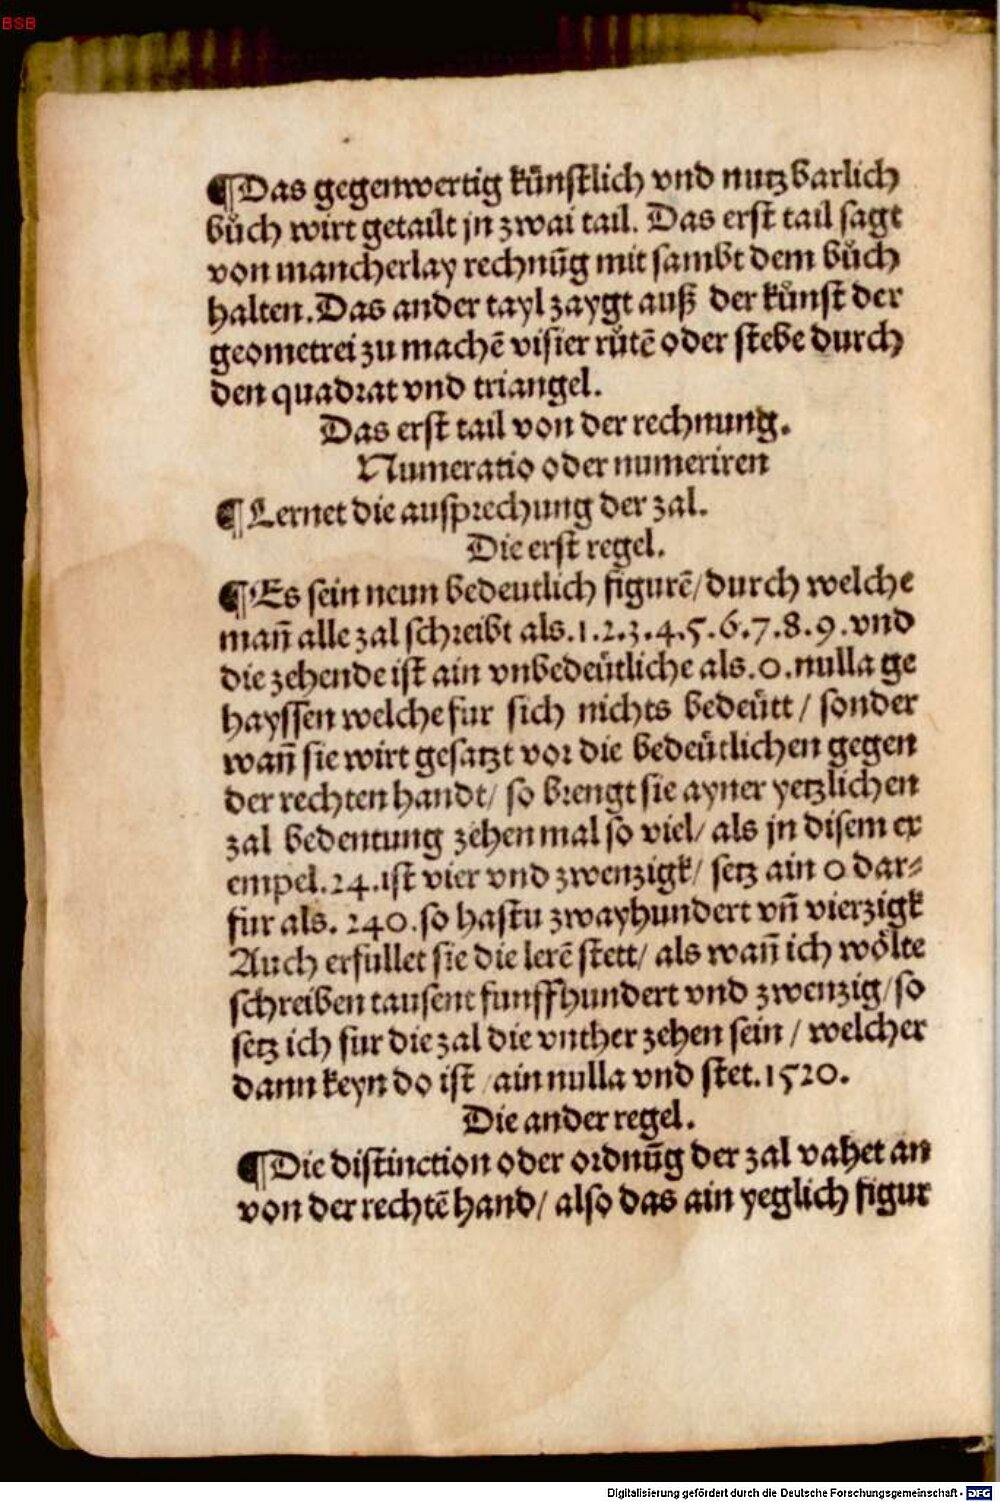 BSB
¶Das gegenwertig kůnstlich vnd nutzbarlich
bůch wirt getailt jn zwai tail. Das erst tail sagt
von mancherlay rechnūg mit sambt dem bůch
halten. Das ander tayl zaygt auß der kůnst der
geometrei zu machē visier růtē oder stebe durch
den quadrat vnd triangel.
Das erst tail von der rechnung.
Numeratio oder numeriren
¶Lernet die ausprechung der zal.
Die erst regel.
¶Es sein neun bedeutlich figurē/ durch welche
man̄ alle zal schreibt als.1.2.3.4.5.6.7.8.9.vnd
die zehende ist ain vnbedeütliche als.0.nulla ge
hayssen welche fur sich nichts bedeütt/ sonder
wan̄ sie wirt gesatzt vor die bedeütlichen gegen
der rechten handt/ so brengt sie ayner yetzlichen
zal bedentung zehen mal so viel/ als jn disem ex
empel.24.ist vier vnd zwenzigk/ setz ain 0 dar⸗
fur als. 240.so hastu zwayhundert vn̄ vierzigk
Auch erfullet sie die lerē stett/ als wan̄ ich wölte
schreiben tausent funffhundert vnd zwenzig/ so
setz ich fur die zal die vnther zehen sein / welcher
dann keyn do ist /ain nulla vnd stet.1520.
Die ander regel.
¶Die distinction oder ordnūg der zal vahet an
von der rechtē hand/ also das ain yeglich figur
Digitalisierung gefördert durch die Deutsche Forschungsgemeinschaft - DFG